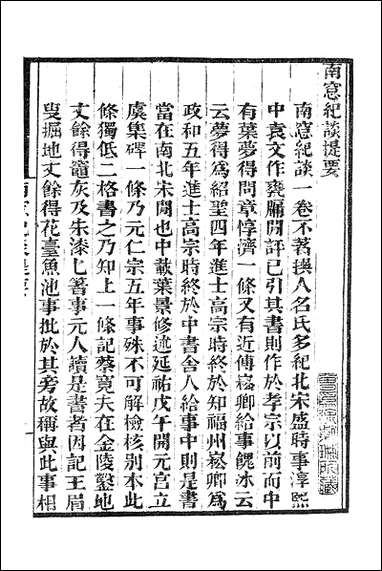 南窓紀談提要
南窓紀談一卷不著撰人名氏多紀北宋盛時事淳熙
中袁文作甕牖閒評已引其書則作於孝宗以前而中
有葉夢得問章惇濟一條又有近傅崧卿給事餽冰云
云夢得爲紹聖四年進士高宗時終於知福州崧卿爲
政和五年進士高宗時終於中書舍人給事中則是書
當在南北宋閒也中載葉景修述延祐戊午開元宮立
虞集碑一條乃元仁宗五年事殊不可解檢核别本此
條獨低二格書之乃知上一條記蔡寛夫在金陵鑿地
丈餘得竈灰及朱漆匕箸事元人續是書者因記王眉
叟掘地丈餘得花臺魚池事批於其旁故稱與此事相